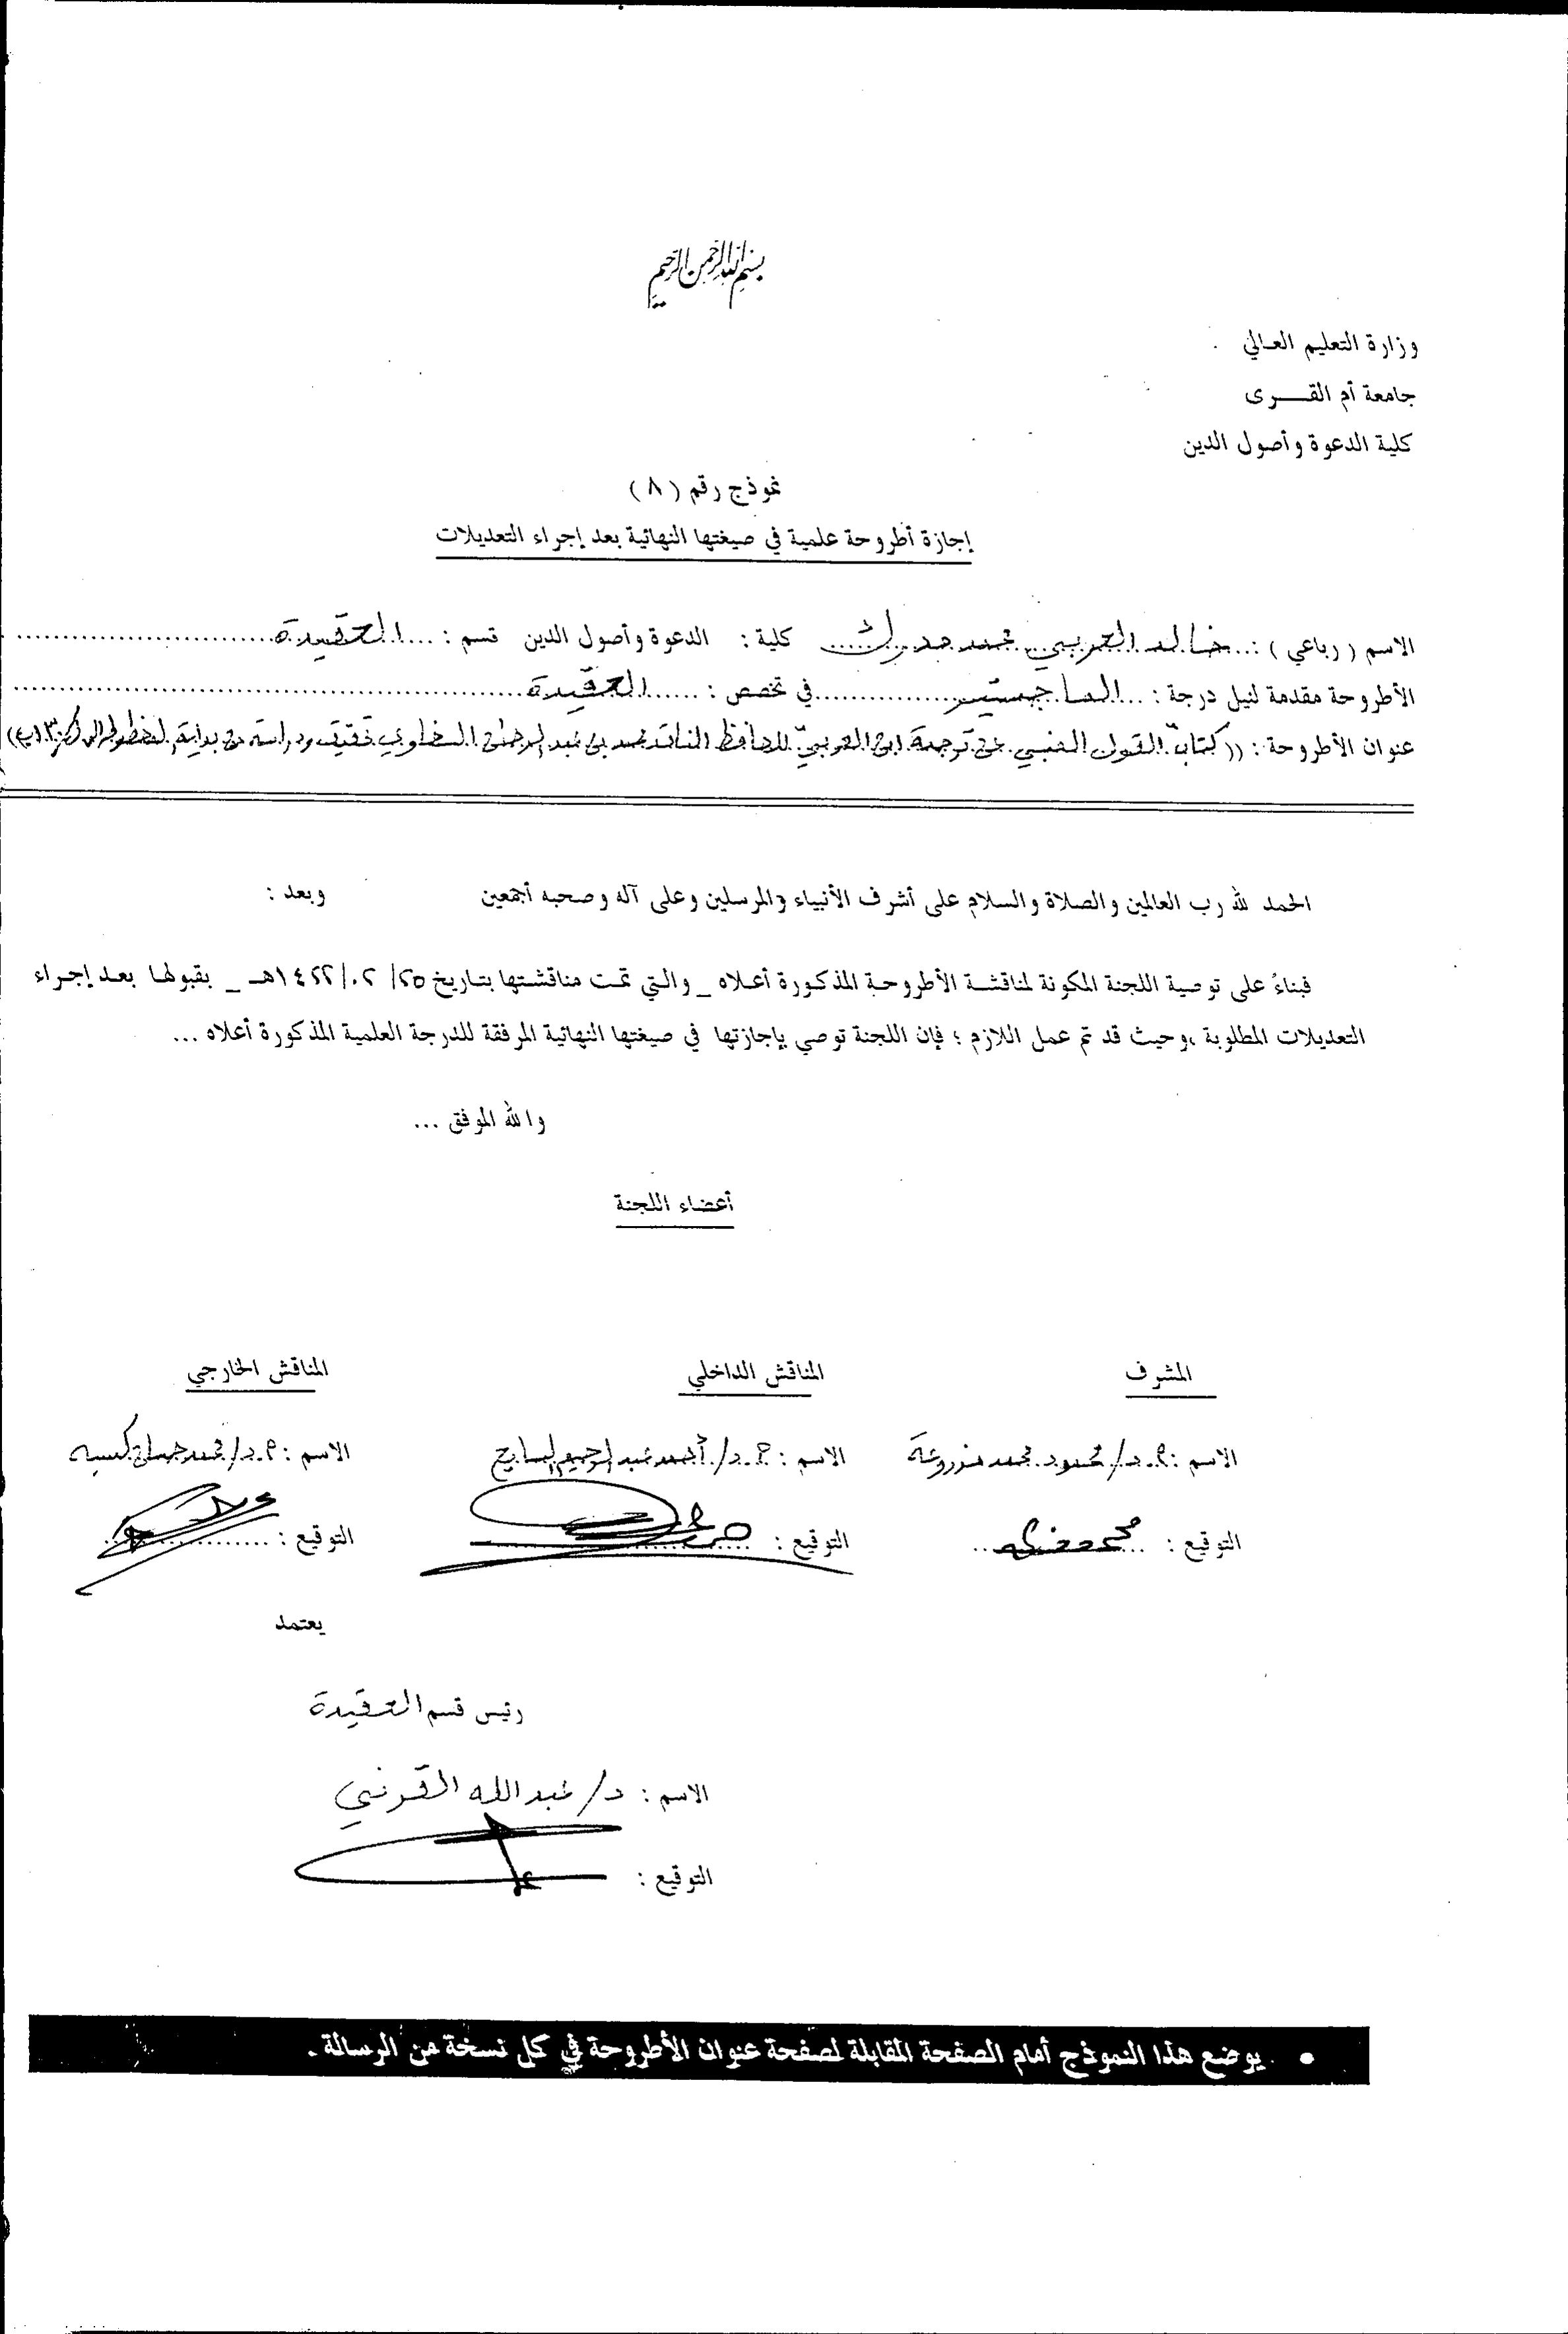 بسم الله الرحمن الرحيم
وزارة التعليم العالي
جامعة أم القــــرى
كلية الدعوة وأصول الدين
نموذج رقم ( ٨ )
إجازة أطروحة علمية في صيغتها النهائية بعد إجراء التعديلات
الاسم ( رباعي ) : خالد العربي محمد مدرك كلية : الدعوة وأصول الدين قسم : العقيدة
الأطروحة مقدمة لنيل درجة : الماجستير في تخصص : العقيدة
عنوان الأطروحة : (( كتاب القول المنبي عن ترجمة ابن العربي للحافظ الناقد محمد بن عبد الرحمن السخاوي تحقيق ودراسة من بداية المخطوط إلى
الحمد لله رب العالمين والصلاة والسلام على أشرف الأنبياء والمرسلين وعلى آله وصحبه أجمعين وبعد :
فبناءً على توصية اللجنة المكونة لمناقشة الأطروحة المذكورة أعلاه _ والتي تمت مناقشتها بتاريخ ٢٥/ ٠٢/ ١٤٢٢هـ _ بقبولها بعد إجراء
التعديلات المطلوبة ،وحيث قد تم عمل اللازم ؛ فإن اللجنة توصي بإجازتها في صيغتها النهائية المرفقة للدرجة العلمية المذكورة أعلاه ...
والله الموفق ...
أعضاء اللجنة
المشرف المناقش الداخلي المناقش الخارجي
الاسم : أ.د/ محمود محمد مزروعة الاسم : أ.د/ أحمد عبد الرحيم السايح الاسم : أ.د/ محمد حسان كسبه
التوقيع : التوقيع : التوقيع :
يعتمد
رئيس قسم العقيدة
الاسم : د/ عبدالله القرني
التوقيع :
• يوضع هذا النموذج أمام الصفحة المقابلة لصفحة عنوان الأطروحة في كل نسخة من الرسالة .